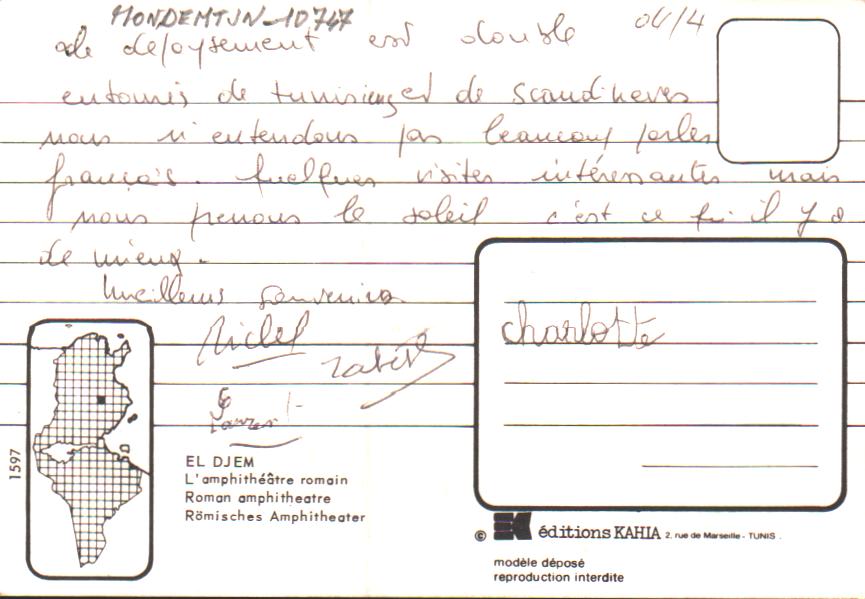 MONDEMTJN_10747
04/4
de depaysement est double
entourés de tunisiens et de scandinaves
nous n'entendons pas beaucoup parler
français. Quelques visites intéressantes mais
nous prenons le soleil c'est ce qu'il y a
de mieux.
Meilleurs souvenirs
Michel
charlotte
1597
EL DJEM
L'amphithéâtre romain
Roman amphitheatre
Römisches Amphitheater
© EK éditions KAHIA 2, rue de Marseille - TUNIS .
modèle déposé
reproduction interdite